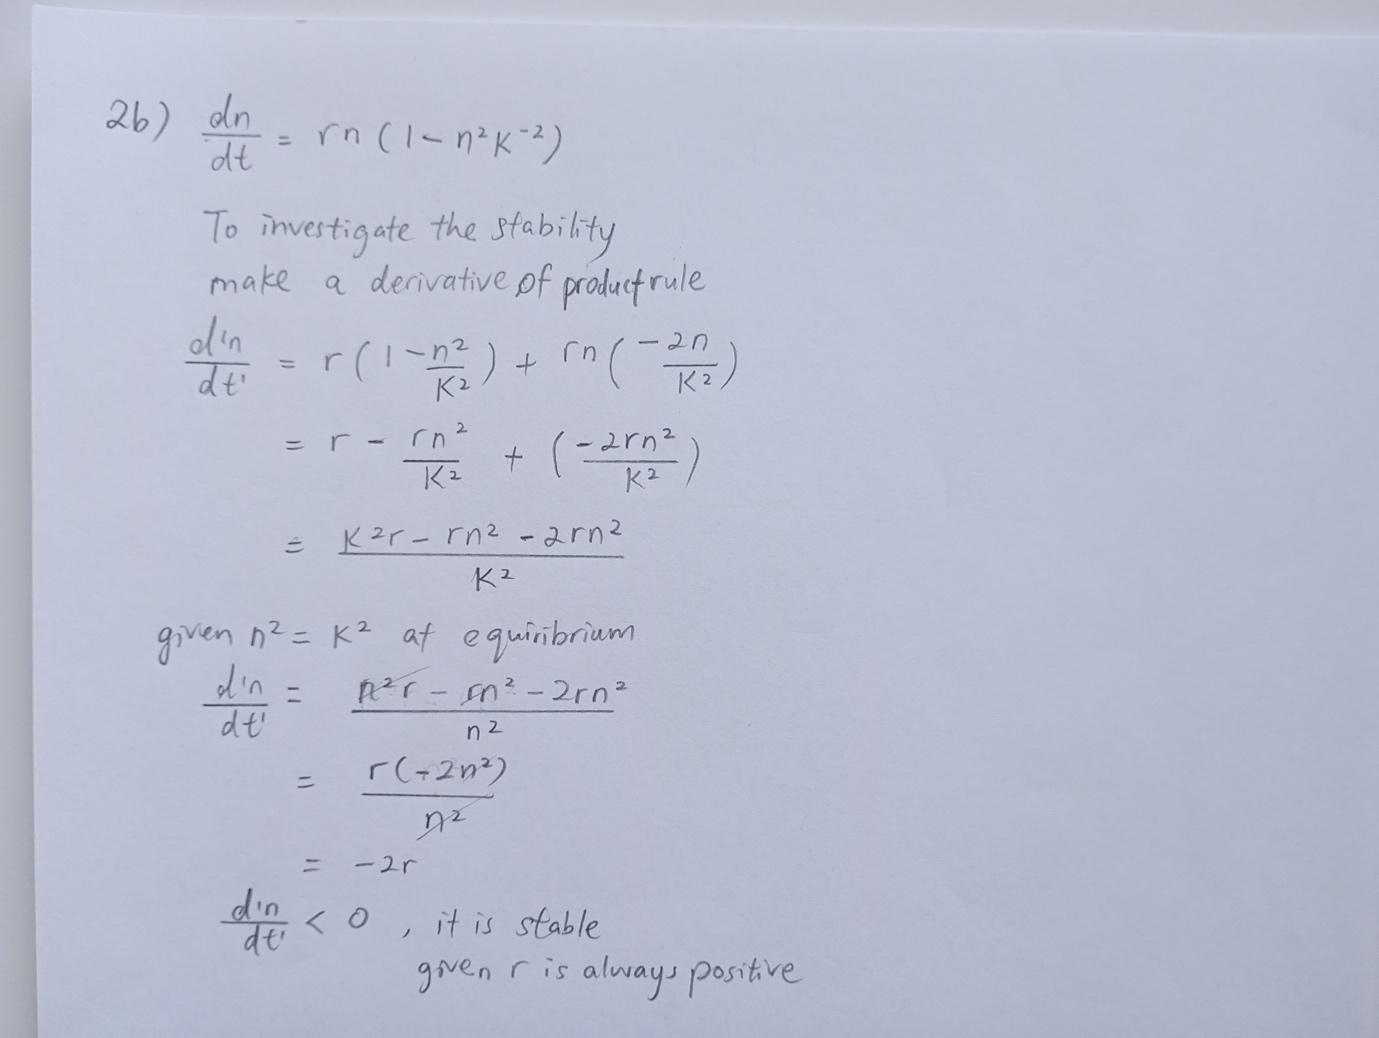 2b) dn/dt = rn(1 - n²K⁻²)
To investigate the stability
make a derivative of product rule
d'n/dt' = r(1 - n²/K²) + rn(-2n/K²)
= r - rn²/K² + (-2rn²/K²)
= K²r - rn² - 2rn²/K²
given n² = K² at equiribrium
d'n/dt' = n²r - rn² - 2rn²/n²
= r(-2n²)/n²
= -2r
d'n/dt' < 0, it is stable
given r is always positive